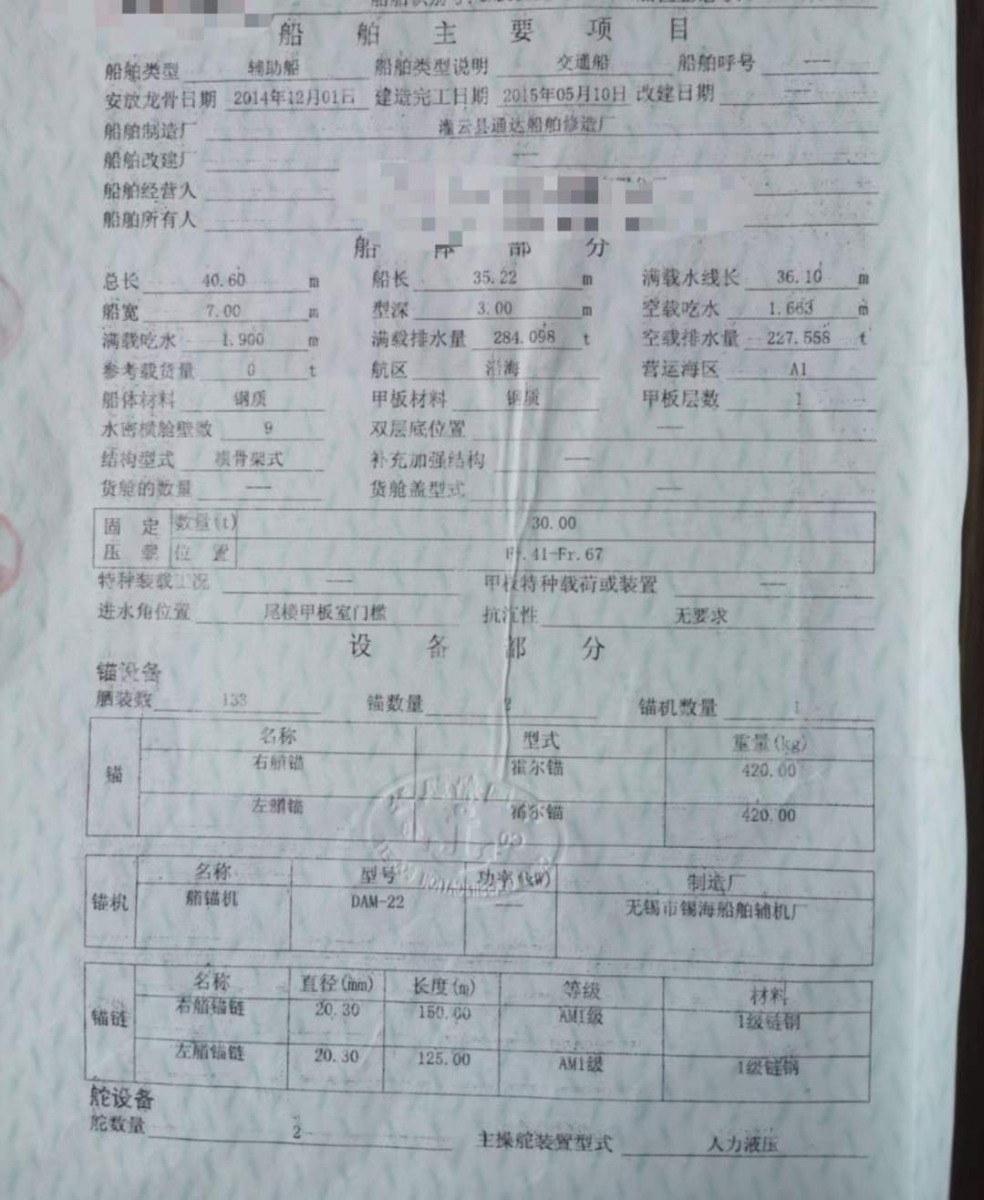 船 舶 主 要 项 目
船舶类型 辅助船 船舶类型说明 交通船 船舶呼号 ---
安放龙骨日期 2014年12月01日 建造完工日期 2015年05月10日 改建日期 ---
船舶制造厂 灌云县通达船舶修造厂
船舶改建厂 ---
船舶经营人
船舶所有人
船 体 部 分
总长 40.60 m 船长 35.22 m 满载水线长 36.10 m
船宽 7.00 m 型深 3.00 m 空载吃水 1.663 m
满载吃水 1.900 m 满载排水量 284.098 t 空载排水量 227.558 t
参考载货量 0 t 航区 沿海 营运海区 A1
船体材料 钢质 甲板材料 钢质 甲板层数 1
水密横舱壁数 9 双层底位置 ---
结构型式 横骨架式 补充加强结构 ---
货舱的数量 --- 货舱盖型式 ---
固 定 数量(t) 30.00
压 载 位 置 Fr.41-Fr.67
特种装载工况 --- 甲板特种载荷或装置 ---
进水角位置 尾楼甲板室门槛 抗沉性 无要求
设 备 部 分
锚设备
舾装数 133 锚数量 2 锚机数量 1
名称 型式 重量(kg)
锚 右艏锚 霍尔锚 420.00
左艏锚 霍尔锚 420.00
名称 型号 功率(kW) 制造厂
锚机 艏锚机 DAM-22 --- 无锡市锡海船舶辅机厂
名称 直径(mm) 长度(m) 等级 材料
锚链 右艏锚链 20.30 150.00 AM1级 1级链钢
左艏锚链 20.30 125.00 AM1级 1级链钢
舵设备
舵数量 2 主操舵装置型式 人力液压